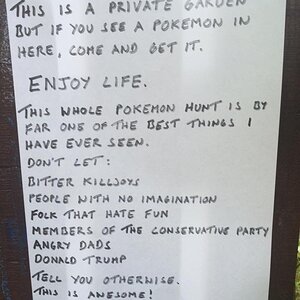 THIS IS A PRIVATE GARDEN
BUT IF YOU SEE A POKEMON IN
HERE, COME AND GET IT.
ENJOY LIFE.
THIS WHOLE POKEMON HUNT IS BY
FAR ONE OF THE BEST THINGS I
HAVE EVER SEEN.
DON'T LET:
BITTER KILLJOYS
PEOPLE WITH NO IMAGINATION
FOLK THAT HATE FUN
MEMBERS OF THE CONSERVATIVE PARTY
ANGRY DADS
DONALD TRUMP
TELL YOU OTHERWISE.
THIS IS AWESOME!